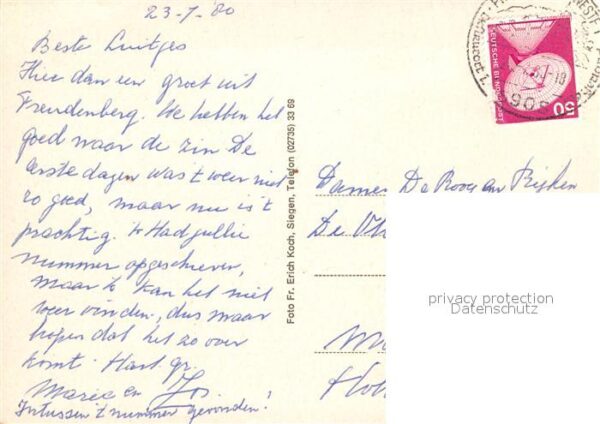 23-7-80
Beste Luitjes
Hier dan een groet uit
Freudenberg. We hebben het
goed naar de zin De
eerste dagen was 't weer niet
zo goed, maar nu is 't
prachtig. Ik Had jullie
nummer opgeschreven,
maar ik kan het niet
weer vinden, dus maar
hopen dat het zo over
komt. Hart. gr.
Marie en Jos.
Intussen 't nummer gevonden!
Foto Fr. Erich Koch, Siegen, Telefon (02735) 33 69
DEUTSCHE BUNDESPOST
50
Dames De Rooy en Rijken
De
privacy protection
Datenschutz